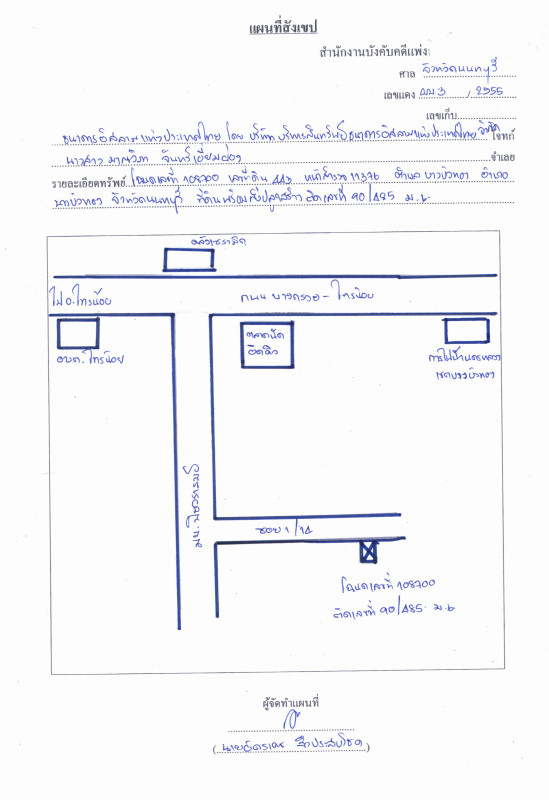 แผนที่สังเขป
สำนักงานบังคับคดีแพ่ง
ศาล จังหวัดนนทบุรี
เลขแดง ผบ /2555
เลขเก็บ
ธนาคารอิสลามแห่งประเทศไทย โดย บริษัท บริหารสินทรัพย์ธนาคารอิสลามแห่งประเทศไทย จำกัด โจทก์
นางสาว จันทร์เอี่ยมผ่อง จำเลย
รายละเอียดทรัพย์ โฉนดเลขที่ 108700 เลขที่ดิน 443 หน้าสำรวจ 11376 ตำบล บางบัวทอง อำเภอ
บางบัวทอง จังหวัดนนทบุรี ที่ดินพร้อมสิ่งปลูกสร้าง ติดเลขที่ 90/485 ม.6
ไป อ.ไทรน้อย
ถนน บางกรวย - ไทรน้อย
อบต.ไทรน้อย
ตลาดนัด
การไฟฟ้านครหลวง
เขตบางบัวทอง
ซอย 1/14
โฉนดเลขที่ 108700
ติดเลขที่ 90/485 ม.6
ผู้จัดทำแผนที่